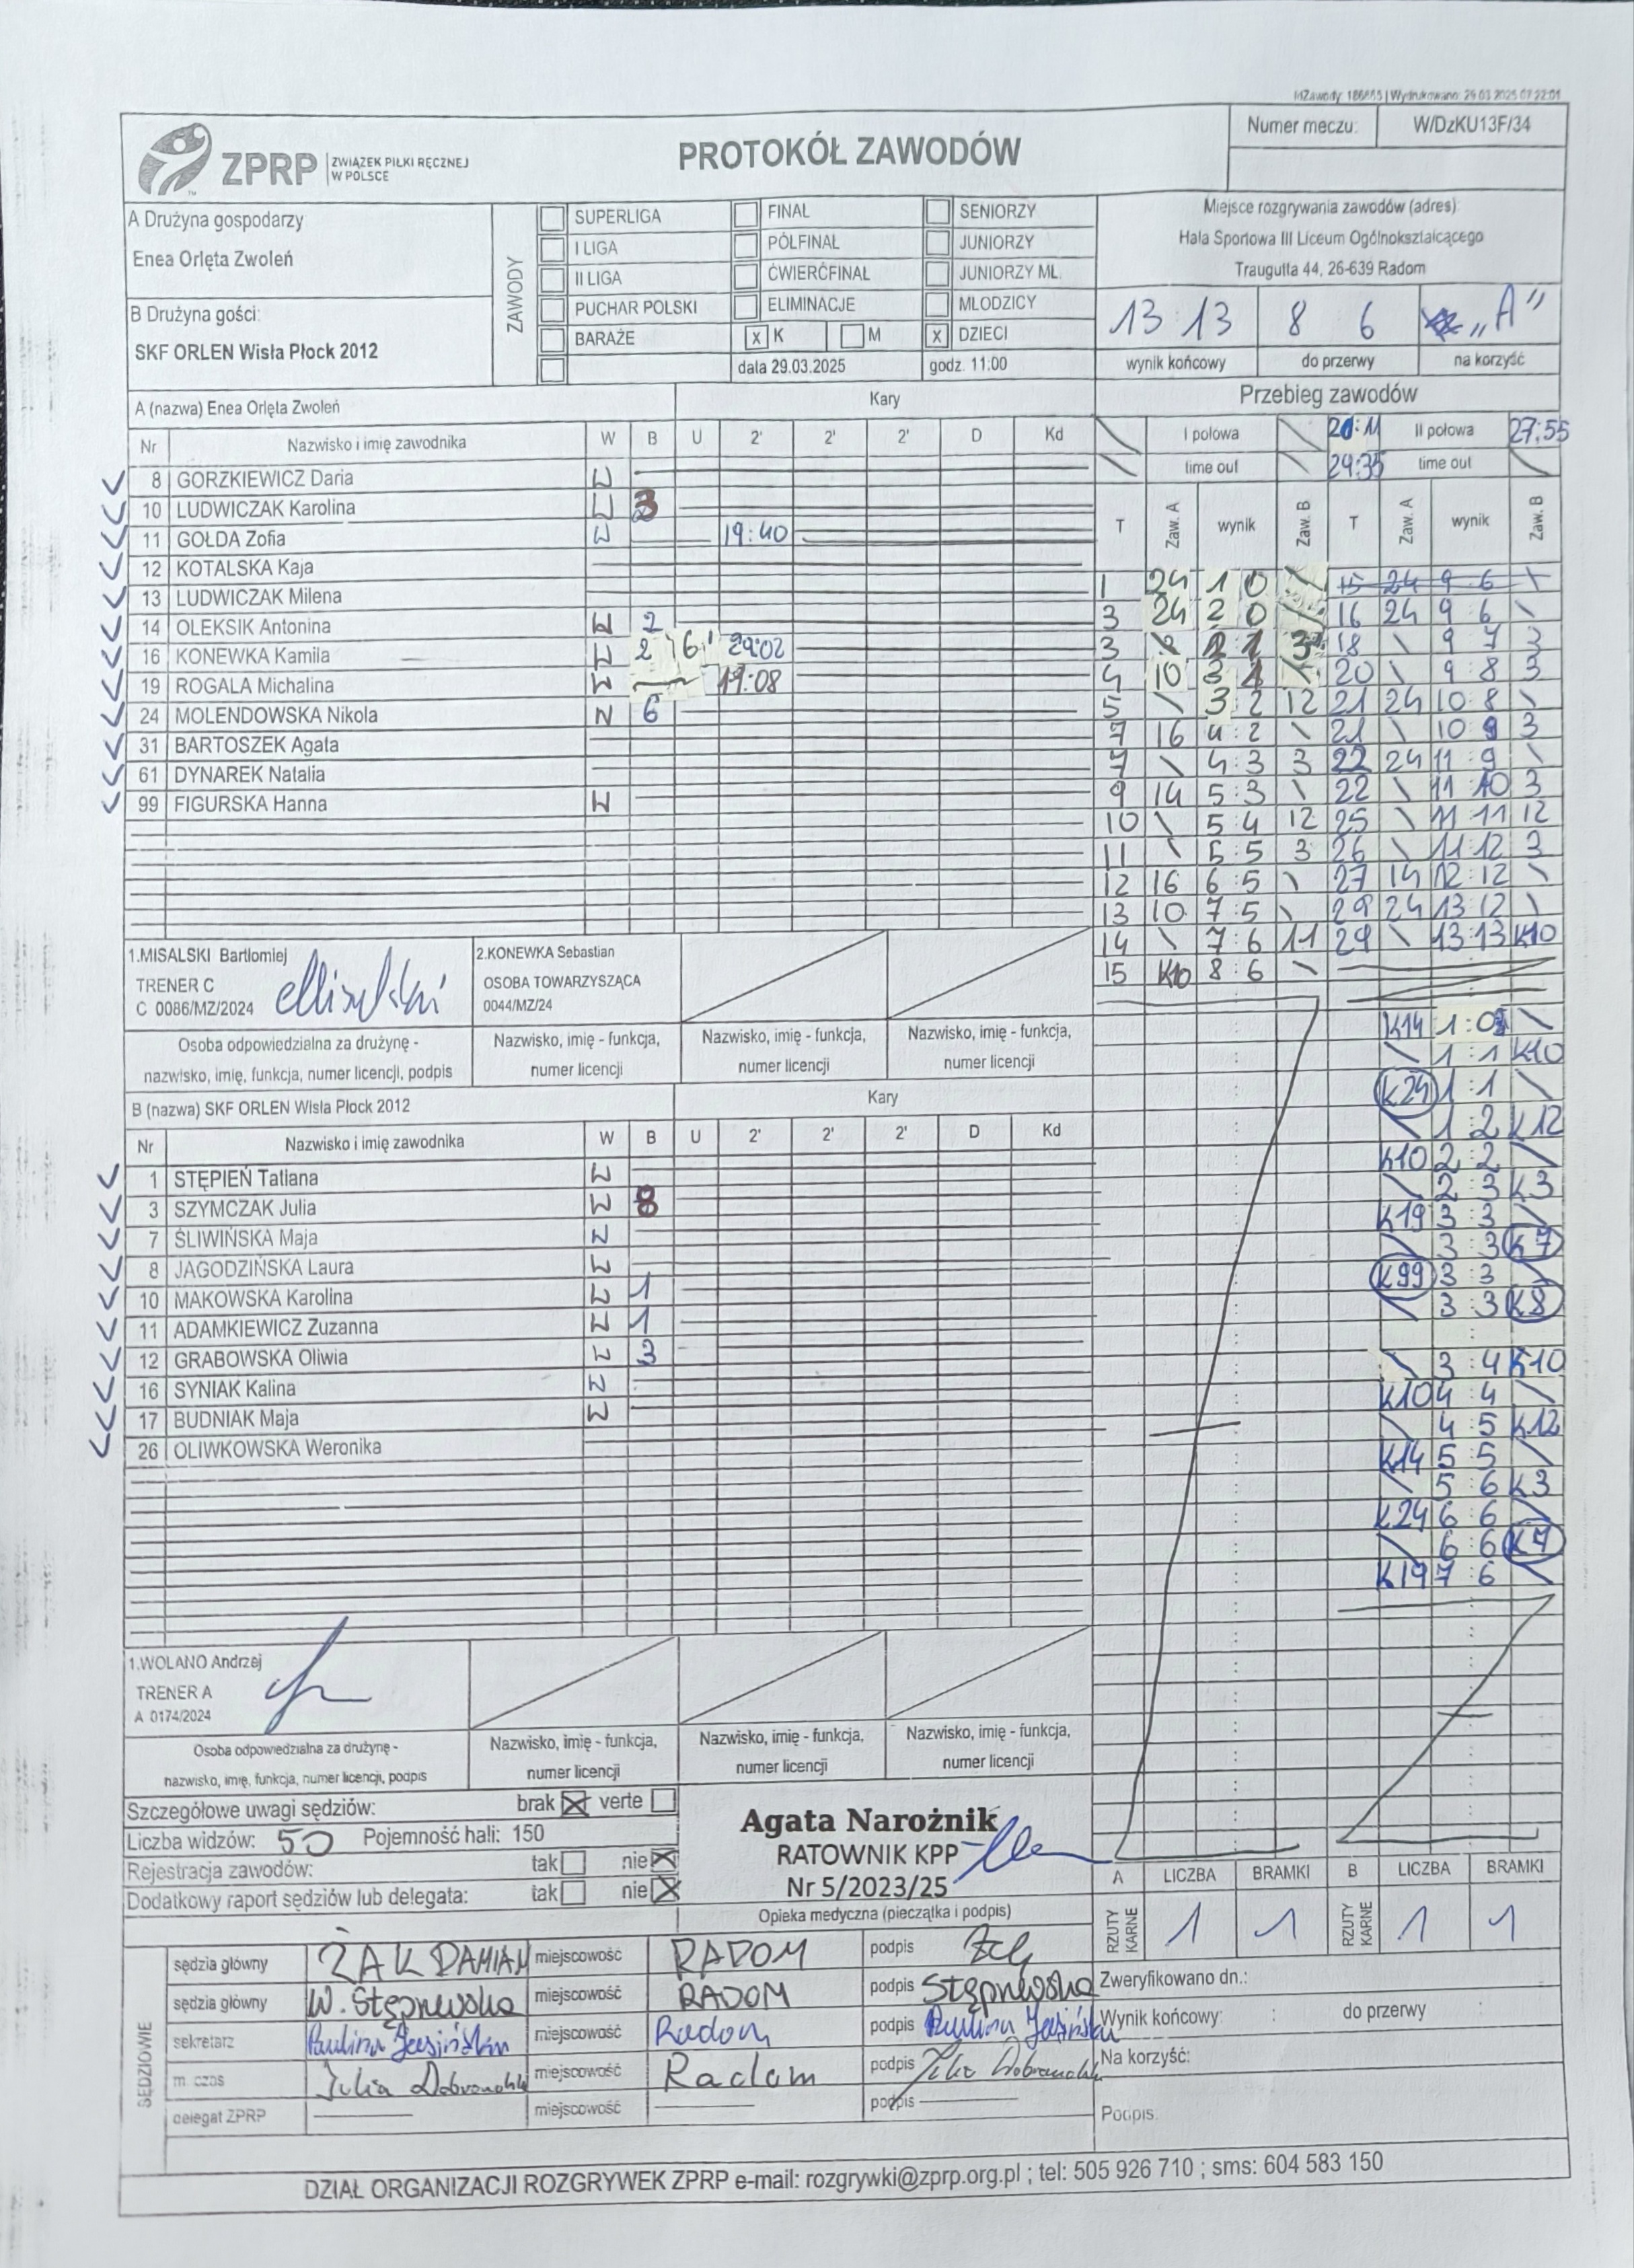 MZawody: 186885 | Wydrukowano: 29.03.2025 07:22:01
Numer meczu: W/DzKU13F/34
ZPRP ZWIĄZEK PIŁKI RĘCZNEJ W POLSCE
PROTOKÓŁ ZAWODÓW
A Drużyna gospodarzy
Enea Orlęta Zwoleń
B Drużyna gości:
SKF ORLEN Wisła Płock 2012
ZAWODY
SUPERLIGA FINAŁ SENIORZY
I LIGA PÓŁFINAŁ JUNIORZY
II LIGA ĆWIERĆFINAŁ JUNIORZY MŁ.
PUCHAR POLSKI ELIMINACJE MŁODZICY
BARAŻE x K M x DZIECI
data 29.03.2025 godz. 11:00
Miejsce rozgrywania zawodów (adres):
Hala Sportowa III Liceum Ogólnokształcącego
Traugutta 44, 26-639 Radom
13 13 8 6 „A"
wynik końcowy do przerwy na korzyść
A (nazwa) Enea Orlęta Zwoleń Kary
Nr Nazwisko i imię zawodnika W B U 2' 2' 2' D Kd
8 GORZKIEWICZ Daria W
10 LUDWICZAK Karolina W 3
11 GOŁDA Zofia W 19:40
12 KOTALSKA Kaja
13 LUDWICZAK Milena
14 OLEKSIK Antonina W 2
16 KONEWKA Kamila W 2 6' 29:02
19 ROGALA Michalina W 19:08
24 MOLENDOWSKA Nikola W 6
31 BARTOSZEK Agata
61 DYNAREK Natalia
99 FIGURSKA Hanna W
1.MISALSKI Bartłomiej
TRENER C
C 0086/MZ/2024
2.KONEWKA Sebastian
OSOBA TOWARZYSZĄCA
0044/MZ/24
Osoba odpowiedzialna za drużynę - nazwisko, imię, funkcja, numer licencji, podpis
Nazwisko, imię - funkcja, numer licencji
Nazwisko, imię - funkcja, numer licencji
Nazwisko, imię - funkcja, numer licencji
B (nazwa) SKF ORLEN Wisła Płock 2012 Kary
Nr Nazwisko i imię zawodnika W B U 2' 2' 2' D Kd
1 STĘPIEŃ Tatiana W
3 SZYMCZAK Julia W 8
7 ŚLIWIŃSKA Maja W
8 JAGODZIŃSKA Laura W
10 MAKOWSKA Karolina W 1
11 ADAMKIEWICZ Zuzanna W 1
12 GRABOWSKA Oliwia W 3
16 SYNIAK Kalina W
17 BUDNIAK Maja W
26 OLIWKOWSKA Weronika
1.WOLANO Andrzej
TRENER A
A 0174/2024
Osoba odpowiedzialna za drużynę - nazwisko, imię, funkcja, numer licencji, podpis
Nazwisko, imię - funkcja, numer licencji
Nazwisko, imię - funkcja, numer licencji
Nazwisko, imię - funkcja, numer licencji
Przebieg zawodów
I połowa 20:11 II połowa 27:55
time out 24:35 time out
T Zaw. A wynik Zaw. B T Zaw. A wynik Zaw. B
1 24 1 0 \ 15 24 9 6 \
3 24 2 0 \ 16 24 9 6 \
3 \ 2 1 3 18 \ 9 7 3
4 10 3 1 \ 20 \ 9 : 8 3
5 \ 3 2 12 21 24 10 : 8 \
7 16 4 : 2 \ 21 \ 10 9 3
7 \ 4 : 3 3 22 24 11 : 9 \
9 14 5 : 3 \ 22 \ 11 10 3
10 \ 5 4 12 25 \ 11 11 12
11 \ 5 : 5 3 26 \ 11 12 3
12 16 6 : 5 \ 27 14 12 : 12 \
13 10 7 : 5 \ 29 24 13 12 \
14 \ 7 : 6 11 29 \ 13:13 K10
15 K10 8 : 6 \
K14 1 : 0 \
\ 1 : 1 K10
K24 1 : 1 \
\ 1 : 2 K12
K10 2 : 2 \
\ 2 : 3 K3
K19 3 : 3 \
\ 3 : 3 K7
K99 3 : 3 \
\ 3 : 3 K8
\ 3 : 4 K10
K10 4 : 4 \
\ 4 : 5 K12
K14 5 : 5 \
\ 5 : 6 K3
K24 6 : 6 \
\ 6 : 6 K7
K19 7 : 6 \
Szczegółowe uwagi sędziów: brak x verte
Liczba widzów: 50 Pojemność hali: 150
Rejestracja zawodów: tak nie x
Dodatkowy raport sędziów lub delegata: tak nie x
Agata Narożnik
RATOWNIK KPP
Nr 5/2023/25
Opieka medyczna (pieczątka i podpis)
A LICZBA BRAMKI B LICZBA BRAMKI
RZUTY KARNE 1 1 RZUTY KARNE 1 1
SĘDZIOWIE
sędzia główny ŻAK DAMIAN miejscowość RADOM podpis
sędzia główny W. Stępnewska miejscowość RADOM podpis Stępnewska
sekretarz Paulina Jasińska miejscowość Radom podpis Paulina Jasińska
m. czas Julia miejscowość Radom podpis
delegat ZPRP miejscowość podpis
Zweryfikowano dn.:
Wynik końcowy: : do przerwy :
Na korzyść:
Podpis:
DZIAŁ ORGANIZACJI ROZGRYWEK ZPRP e-mail: rozgrywki@zprp.org.pl ; tel: 505 926 710 ; sms: 604 583 150